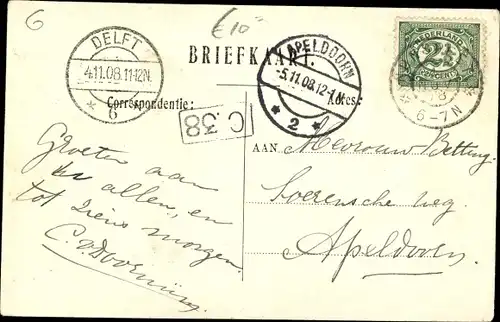 G
€10
DELFT
4.11.08.11-12N.
* 6 *
BRIEFKAART.
APELDOORN
-5.11.08.12-1
* 2 *
NEDERLAND
2½
CENT
6-7N
Correspondentie:
Adres:
C.38
Groeten aan
allen, en
tot ziens morgen.
AAN Mevrouw Betting.
Soerensche weg.
Apeldoorn